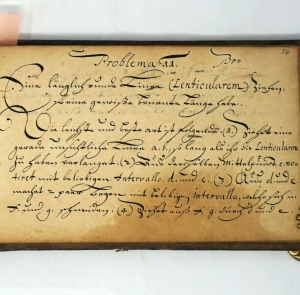 Problema 22.
Eine länglich runde Linea (Lenticularem) Ziehen,
so eine gewisse benante Länge habe.
Die leichste und beste Art ist folgende. (1) Ziehet eine
gerade unsichtliche Linea a.b. so lang als ihr die Lenticularem
zu haben verlanget. (2) Aus derselben Mittelpunct
tiret mit beliebigen Intervallo. d. und e. (3) Aus d. und e
machet 2 paar Bogen mit beliebigen Intervallo, welche sich in
f. und g. schneiden. (4) Ziehet auß f. g. durch d und e